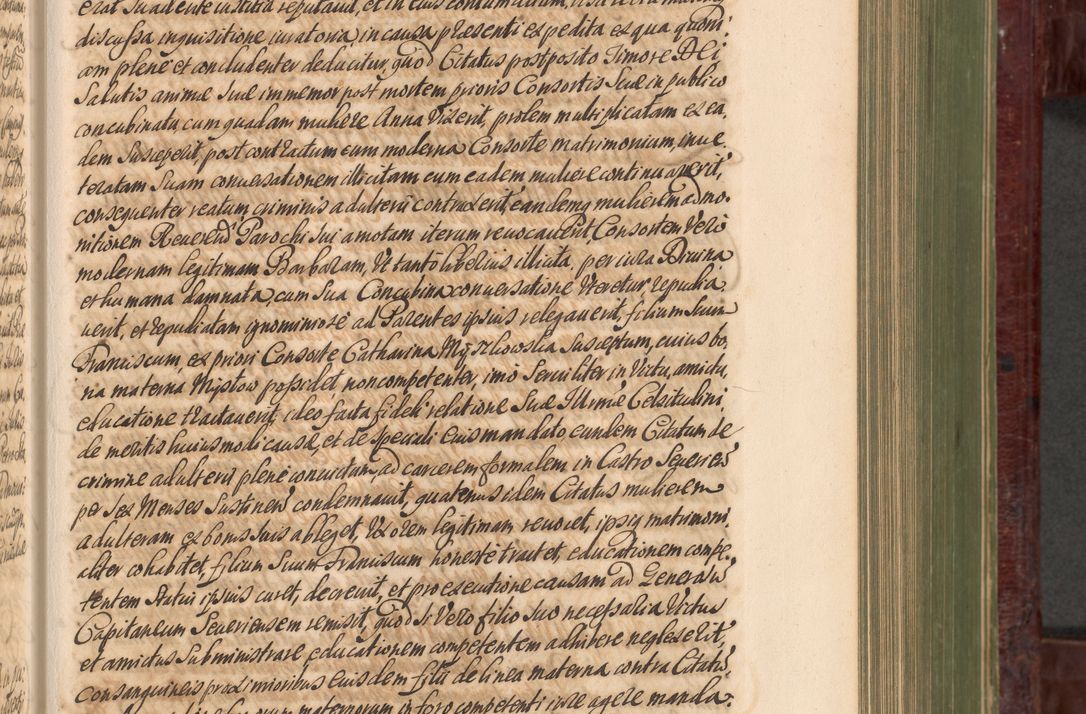 discussa inquisitione iuratoria, in causa præsenti expedita ex qua quoni
am plenè et concludenter deducitur, quod Citatus postposito Timore DEI
Salutis animæ suæ immemor post mortem prioris Consortis Suæ in publico
concubinatu cum quadam muliere Anna vixerit, prolem multiplicatam ex ea,
dem susceperit, post contractum cum moderna Consorte matrimonium, inue,
teratam Suam conuersationem illicitam cum eadem muliere continuaverit,
consequenter reatum criminis adulterii contraxerit, eandemq mulierem ad mo,
nitionem Reuerend Parochi sui amotam iterum reuocauerit Consortem vero
modernam legitimam Barbaram, Ut tantò liberius illicita, per iura Diuina
et humana damnata, cum Sua Concubina conuersatione Uteretur repudia,
uerit, et repudiatam ignominiosè ad Parentes ipsius relegauerit, filium Suum
Franciscum, ex priori Consorte Catharina Myszkowska susceptum, cuius bo,
na materna Mzystow possidet non competenter, imò Seruiliter in Victu, amictu,
educatione tractauerit, ideo facta fideli relatione Suæ Illrmæ Celsitudini
de meritis huiusmodi causæ, et de speciali Eius mandato eundem Citatum de
crimine adulterii plenè conuictum, ad carcerem formalem in Castro Seuerien
per sex Menses Sustinen condemnauit, quatenus idem Citatus mulierem
adulteram ex bonis suis ableget, Uxorem legitimam reuocet, ipsiq matrimoni,
aliter cohabitet, filium Suum Franciscum honestè tractet, educationem compe,
tentem statui ipsius curet, decreuit, et pro executione causam ad Generalem
Capitaneum Seueriensem remisit, quod si vero filio suo necessaria Victus
et amictus subministrare educationem competentem adhibere neglexerit,
consanguineis proximioribus eiusdem filii de linea materna contra Citatum
maternorum in foro competenti iure agere manda,